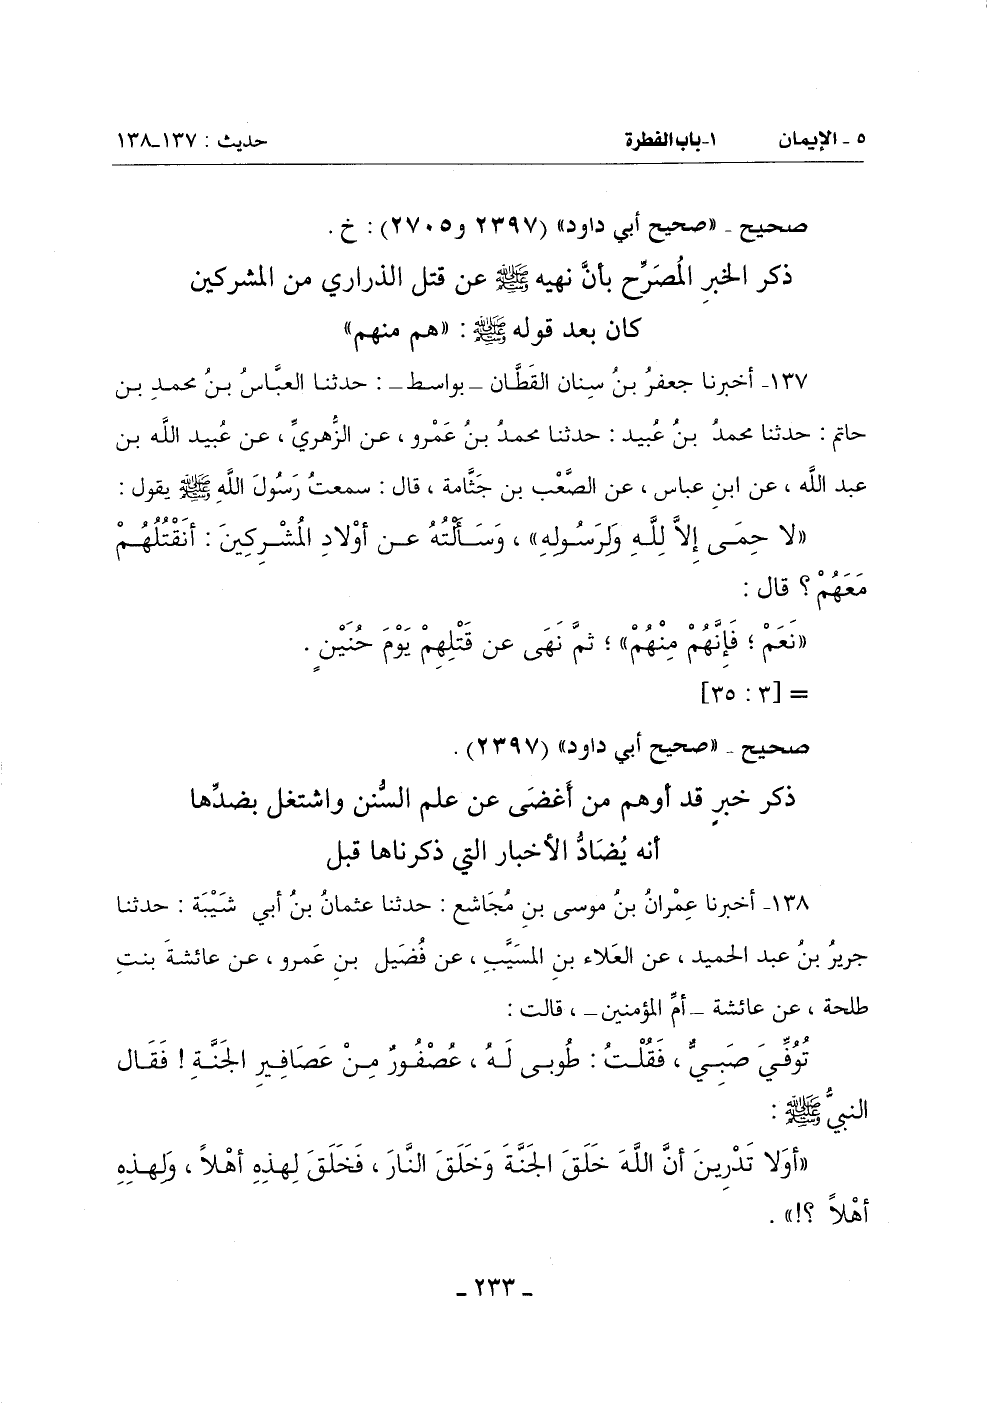 ٥ ـ الإيمان ١-باب الفطرة حديث : ١٣٧ـ١٣٨
صحيح ـ «صحيح أبي داود» (٢٣٩٧ و٢٧٠٥) : خ .
ذكر الخبرِ المُصَرِّح بأنَّ نهيه ﷺ عن قتل الذراري من المشركين
كان بعد قوله ﷺ : «هم منهم»
١٣٧ـ أخبرنا جعفرُ بنُ سِنان القَطَّان ـ بواسط ـ : حدثنا العبَّاسُ بنُ محمدِ بن
حاتم : حدثنا محمدُ بنُ عُبيد : حدثنا محمدُ بنُ عَمْرو ، عن الزُّهريِّ ، عن عُبيد اللَّه بن
عبد اللَّه ، عن ابنِ عباس ، عن الصَّعْب بن جَثَّامة ، قال : سمعتُ رَسُولَ اللَّهِ ﷺ يقول :
«لا حِمَـى إلاَّ لِلَّـهِ ولِرَسُـولِهِ» ، وَسَـأَلْتُهُ عـن أوْلادِ المُشْـرِكِينَ : أنَقْتُلُهُـمْ
مَعَهُمْ ؟ قال :
«نَعَمْ ؛ فَإنَّهُمْ مِنْهُمْ» ؛ ثمَّ نَهَى عن قَتْلِهِمْ يَوْمَ حُنَيْنٍ .
= [٣ : ٣٥]
صحيح ـ «صحيح أبي داود» (٢٣٩٧) .
ذكر خبرٍ قد أوهم من أَغضَى عن علم السُّنن واشتغل بضدِّها
أنه يُضَادُّ الأخبار التي ذكرناها قبل
١٣٨ـ أخبرنا عِمْرانُ بنُ موسى بنِ مُجَاشع : حدثنا عثمانُ بنُ أبي شَيْبَة : حدثنا
جريرُ بنُ عبد الحميد ، عن العَلاء بنِ المسَيَّبِ ، عن فُضَيل بنِ عَمرو ، عن عائشةَ بنتِ
طلحة ، عن عائشة ـ أمِّ المؤمنين ـ ، قالت :
تُوُفِّيَ صَبِـيٌّ ، فَقُلْـتُ : طُوبـى لَـهُ ، عُصْفُورٌ مِـنْ عَصَافِيرِ الجَنَّـةِ ! فَقَـال
النبيُّ ﷺ :
«أوَلا تَدْرِينَ أنَّ اللَّهَ خَلَقَ الجَنَّةَ وَخَلَقَ النَّارَ ، فَخَلَقَ لِهذِهِ أهْلاً ، وَلِهـذِهِ
أهْلاً ؟!» .
ـ ٢٣٣ ـ